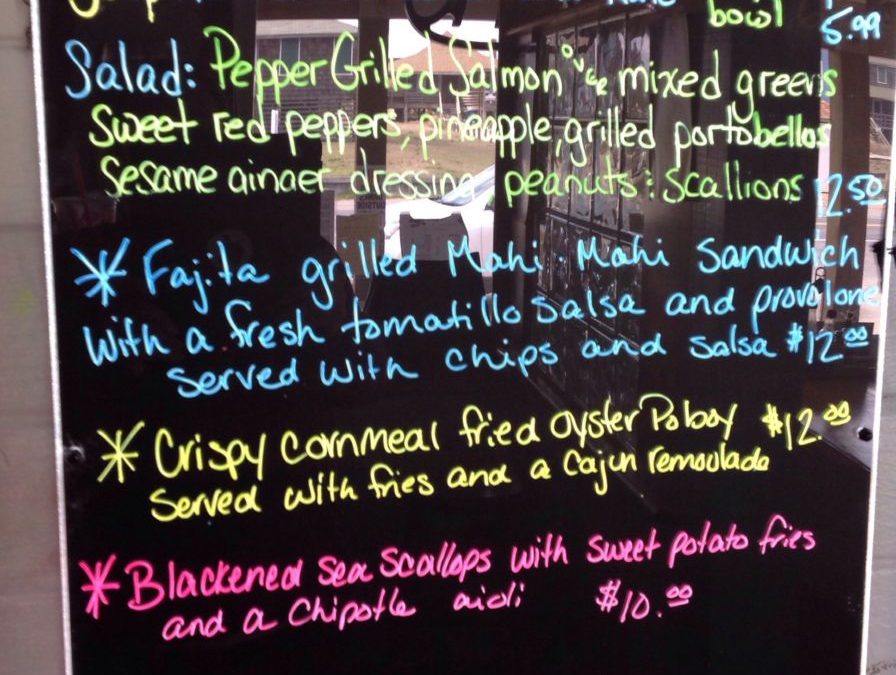 bowl 5.99
Salad: Pepper Grilled Salmon over mixed greens
Sweet red peppers, pineapple, grilled portobellos
Sesame ginger dressing peanuts : scallions 12.50
* Fajita grilled Mahi-Mahi Sandwich
with a fresh tomatillo salsa and provolone
served with chips and salsa $12.00
* Crispy cornmeal fried oyster Poboy $12.00
Served with fries and a Cajun remoulade
* Blackened Sea Scallops with sweet potato fries
and a Chipotle aioli $10.00